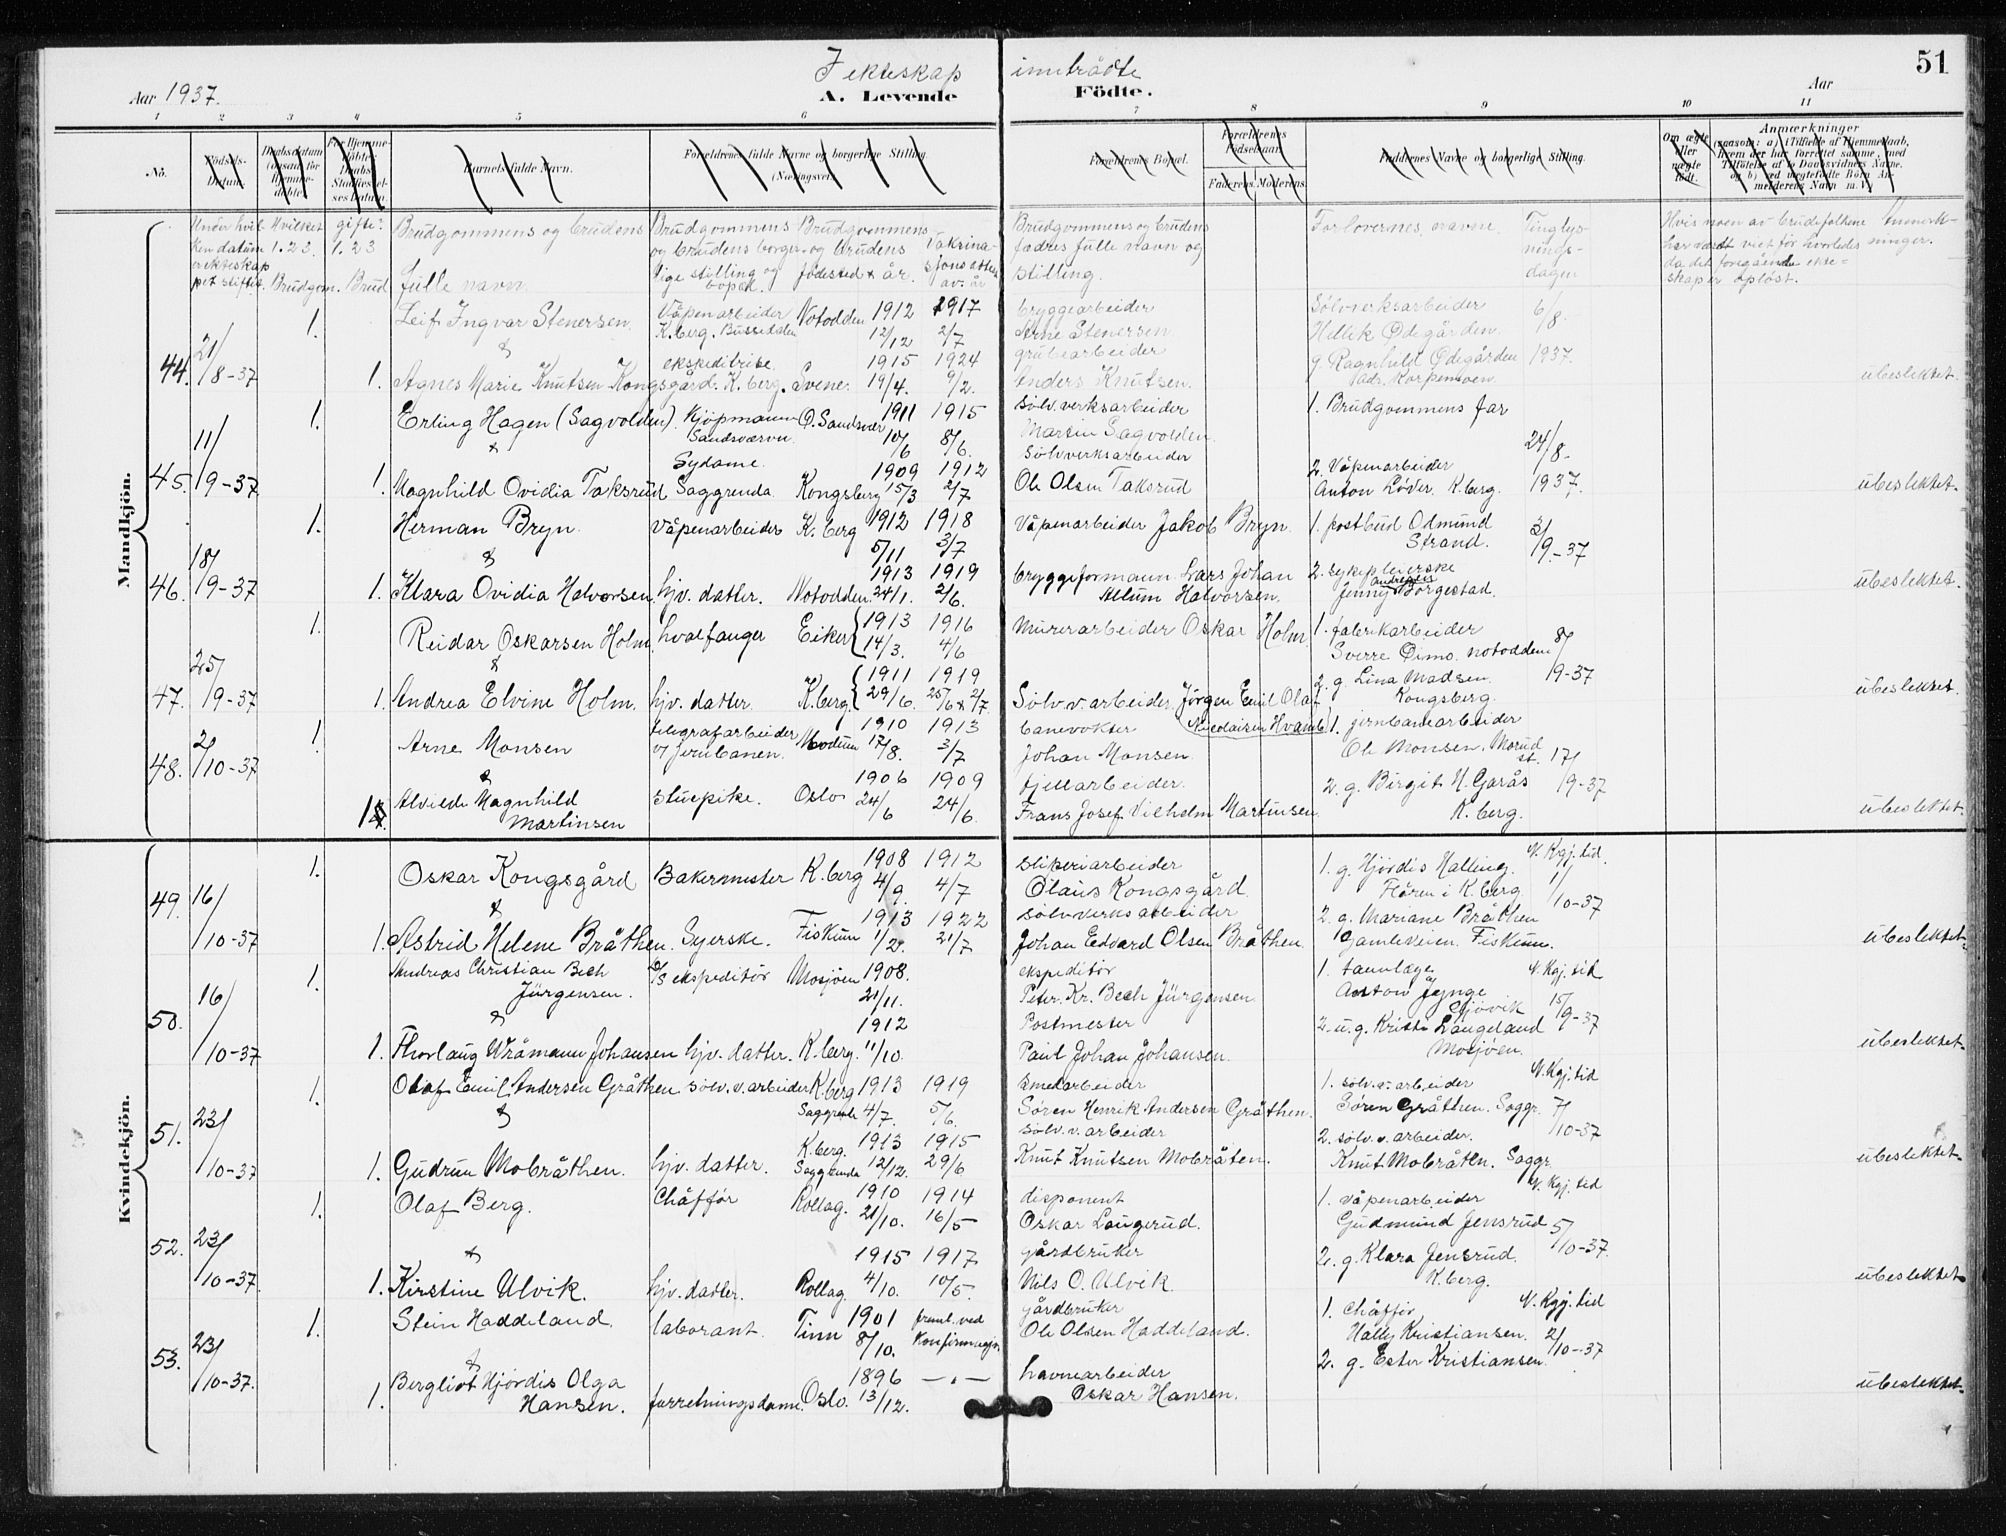 I ekteskap inntrådte
51
Aar 1937.
A. Levende Födte.
Aar
1 2 3 4 5 6 7 8 9 10 11
No.
Födsels-Datum.
Barnets fulde Navn.
Forældrenes fulde Navne og borgerlige Stilling
(Næringsvei).
Forældrenes Bopæl.
Forældrenes Födselsaar.
Faderens. Moderens.
Faddernes Navne og borgerlige Stilling.
Om ægte eller uægte födt.
Anmærkninger
Brudgommens og brudens fulle navn
Brudgommens og brudens borgerlige stilling og bopel.
Brudgommens og brudens fødested & år.
Vaksinasjonsattest av år
Brudgommens og brudens fedres fulle navn og stilling.
Forlovernes navne.
Tinglysningsdagen
Hvis noen av brudefolkene har vært viet før hvorledes da det foregående ekteskap er opløst.
Anmerkninger.
Mandkjön.
44. 21/8-37
1. Leif Ingvar Stenersen Våpenarbeider K.berg. Notodden 1912 12/12 1917 2/7 bryggearbeider Arne Stenersen Sølvverksarbeider Hellek Ødegården 6/8.
&
1. Agnes Marie Knutsen Kongsgård. K.berg. ekspeditrise Svene. 1915 19/4. 1924 9/2. grubearbeider Anders Knutsen. g. Ragnhild Ødegården 1937. ubeslektet.
45. 11/9-37
1. Erling Hagen (Sagvolden) Kjøpmann Sandsværvn. Ø. Sandsvær 1911 10/6 1915 8/6. sølv.verksarbeider Martin Sagvolden. 1. Brudgommens far 24/8.
&
1. Magnhild Ovidia Taksrud Sydame. Saggrenda Kongsberg 1909 15/3 1912 2/7 Sølvverksarbeider Ole Olsen Taksrud 2. Våpenarbeider Anton Løver. K.berg. 1937. ubeslektet.
46. 18/9-37
1. Herman Bryn Våpenarbeider K.berg 1912 5/11 1918 3/7 Våpenarbeider Jakob Bryn. 1. postbud Odmund Strand. 3/9-37
&
1. Klara Ovidia Halvorsen hjv. datter. Notodden 1913 24/1. 1919 2/6. bryggeformann Lars Johan Allum Halvorsen. 2. sykepleierske Jenny Borgestad. ubeslektet.
47. 25/9-37
1. Reidar Oskarsen Holm hvalfanger Eiker 1913 14/3. 1916 4/6 Murerarbeider Oskar Holm 1. fabrikarbeider Sverre Dimo. Notodden 8/9-37
&
1. Andrea Elvine Holm. hjv. datter. K.berg. 1911 29/6. 1919 25/6 & 2/7. Sølv.v.arbeider Jörgen Emil Olaf Nicolaisen Hvamb 2. g. Lina Madsen. Kongsberg. ubeslektet.
48. 2/10-37
1. Arne Monsen telegrafarbeider v/ Jernbanen. Modum 1910 17/8. 1913 3/7 banevokter Johan Monsen. 1. jernbanearbeider Ole Monsen, Morud st. 17/9-37
&
1. Alvilde Magnhild Martinsen stuepike. Oslo 1906 24/6 1909 24/6. fjellarbeider. Frans Josef Vilhelm Martinsen 2. g. Birgit H. Garås K.berg. ubeslektet.
Kvindekjön.
49. 16/10-37
1. Oskar Kongsgård Bakermester K.berg 1908 4/9. 1912 4/7 sliperiarbeider Olaus Kongsgård. 1. g. Hjördis Halling. Flåren i K.berg V. Kgj. tid. 1/10-37
&
1. Astrid Helene Bråthen. Syerske. Fiskum 1913 1/2. 1922 21/7 sølvverksarbeider Johan Edvard Olsen Bråthen 2. g. Mariane Bråthen Gamleveien. Fiskum. ubeslektet.
50. 16/10-37
1. Andreas Christian Bech Jürgensen. D/S ekspeditör Mosjøen 1908. 21/11. ekspeditör Peter. Kr. Bech Jürgensen 1. tannlæge Anton Jynge Gjøvik V. Kgj. tid 15/9-37
&
1. Thorlaug Wråmann Johansen hjv. datter. K.berg. 1912 11/10. Postmester Paul Johan Johansen. 2. u.g. Kristi Langeland Mosjöen. ubeslektet.
51. 23/10-37
1. Olaf Emil Andersen Gråthen sølv.v.arbeider K.berg Saggrenda 1913 4/7. 1919 5/6. Smedarbeider Søren Henrik Andersen Gråthen. 1. sølv.v.arbeider Søren Gråthen. Saggr. V. Kgj. tid 7/10-37
&
1. Gudrun Mobråthen. hjv. datter. K.berg. Saggrenda 1913 12/12. 1915 29/6 sølv.v.arbeider Knut Knutsen Mobråten. 2. sølv.v.arbeider. Knut Mobråtn. Saggr. ubeslektet.
52. 23/10-37.
1. Olaf Berg. Chåffør Rollag. 1910 21/10. 1914 16/5 disponent Oskar Laugerud. 1. våpenarbeider Gudmund Jensrud V. Kgj. tid 5/10-37.
&
1. Kirstine Ulvik. hjv. datter. Rollag 1915 4/10. 1917 10/5. gårdbruker Nils O. Ulvik 2. g. Klara Jensrud. K.berg. ubeslektet.
53. 23/10-37.
1. Stein Haddeland. laborant. Tinn 1901 8/10. freml. ved Konfirmasjon gårdbruker Ole Olsen Haddeland. 1. chåffør Hally Kristiansen. V. Kgj. tid 2/10-37
&
1. Bergliot Hjördis Olga Hansen. forretningsdame. Oslo. 1896 13/12. —"— havnearbeider Oskar Hansen. 2. g. Ester Kristiansen ubeslektet.